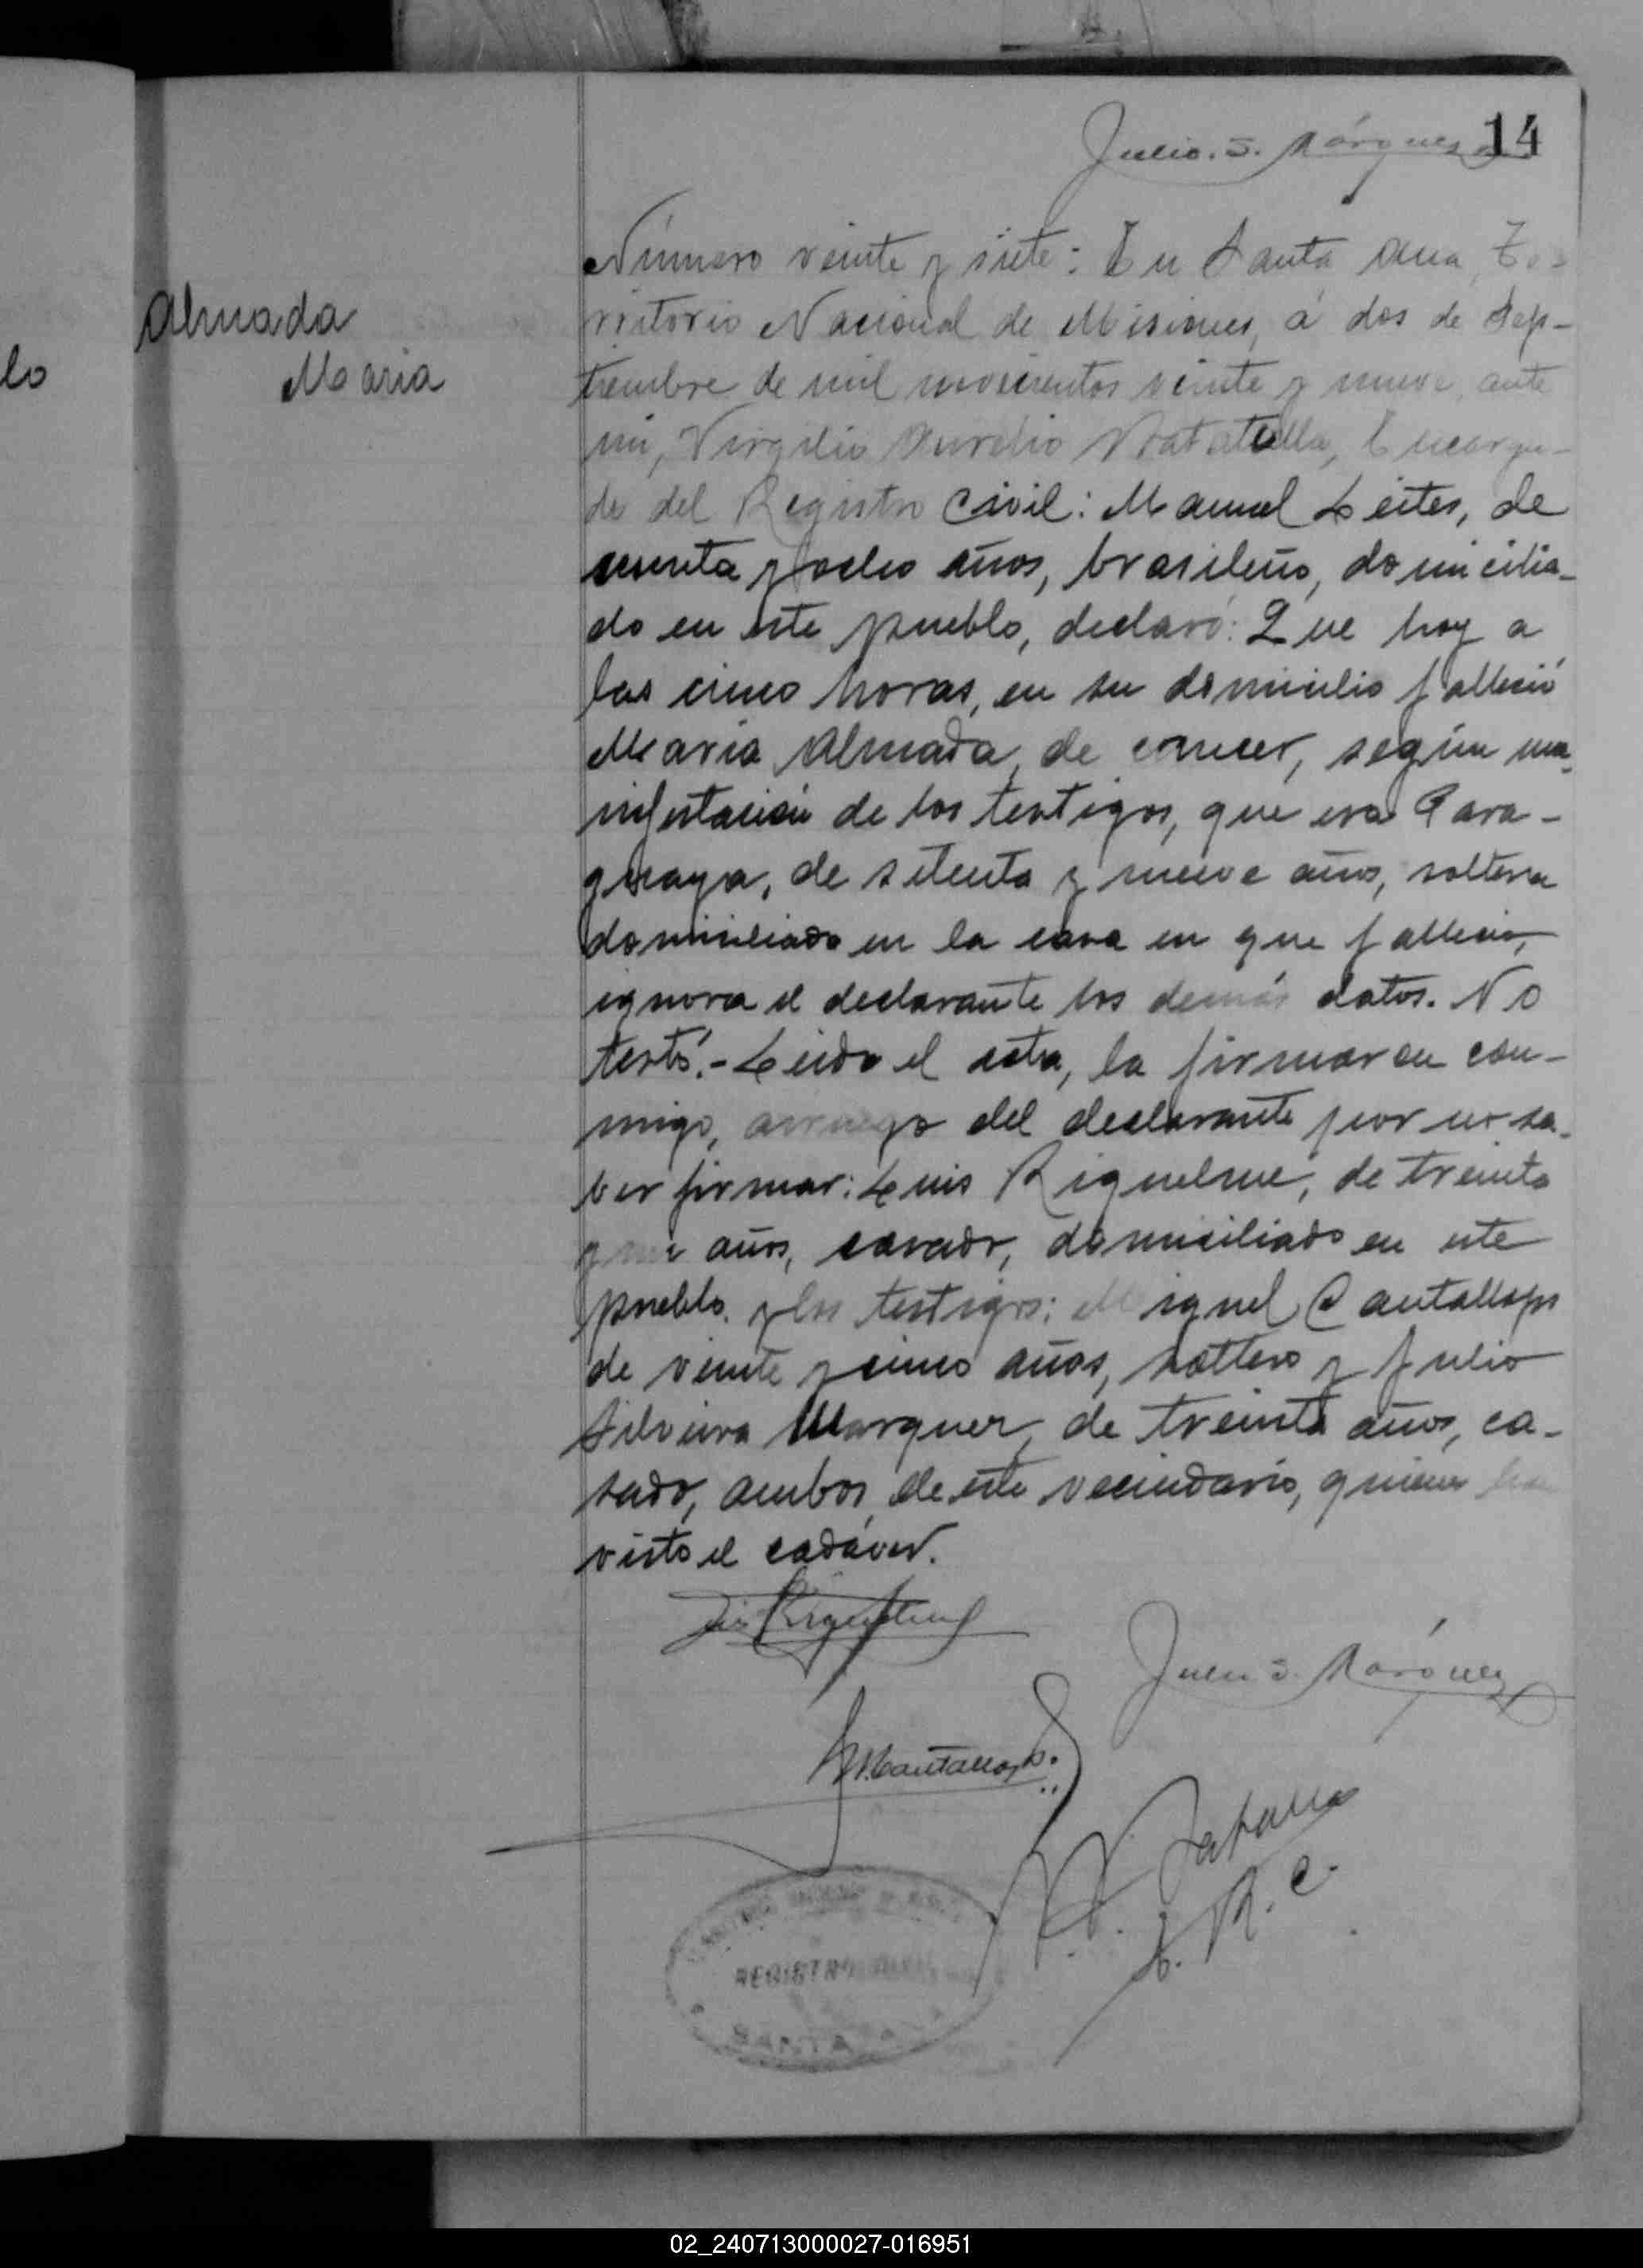 14
Julio. S. Márquez
Almada
Maria
lo
Número veinte y siete: En Santa Ana, Te-
rritorio Nacional de Misiones, á dos de Sep-
tiembre de mil novecientos veinte y nueve, ante
mi, Virgilio Aurelio Encarga-
do del Registro Civil: Manuel Leites, de
y ocho años, brasileño, domicilia-
do en este pueblo, declaró: Que hoy a
las cinco horas, en su domicilio falleció
Maria Almada, de cancer, según ma-
nifestación de los testigos, que era Para-
guaya, de setenta y nueve años, soltera
domiciliada en la casa en que falleció,
ignora el declarante los demás datos. No
testó.- Leida el acta, la firmaron con-
migo, arruego del declarante por no sa-
ber firmar: Luis Riquelme, de treinta
y años, casado, domiciliado en este
pueblo. y los testigos: Miguel Cantallops
de veinte y cinco años, soltero y Julio
Silveira Marquez, de treinta años, ca-
sado, ambos de este vecindario, quienes han
visto el cadáver.
Luis Riquelme
Julio S. Márquez
M. Cantallops.
E. R. C.
REGISTRO CIVIL
SANTA ANA
02_240713000027-016951